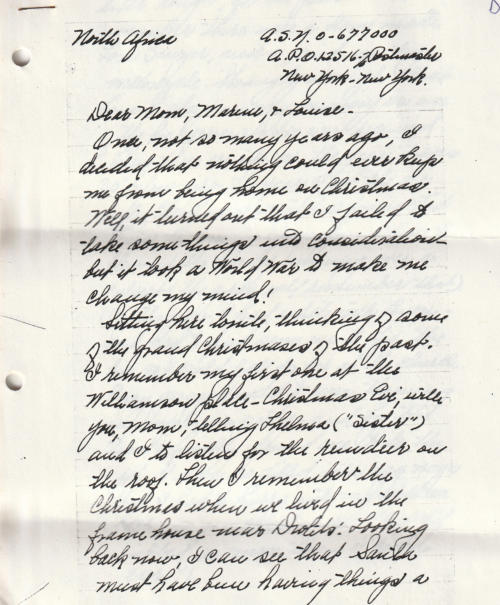 North Africa A.S.N. 0-677000
A.P.O. 12516-℅ Postmaster
New York - New York.
Dear Mom, Marine, & Louise -
Once, not so many years ago, I
decided that nothing could ever keep
me from being home on Christmas.
Well, it turned out that I failed to
take some things into consideration -
but it took a World War to make me
change my mind!
Sitting here tonite, thinking of some
of the grand Christmases of the past.
I remember my first one at the
Williamson place - Christmas Eve, with
you, Mom, telling Thelma ("Sister")
and I to listen for the reindeer on
the roof. Then I remember the
Christmas when we lived in the
frame house near Looking
back now, I can see that Santa
must have been having things a